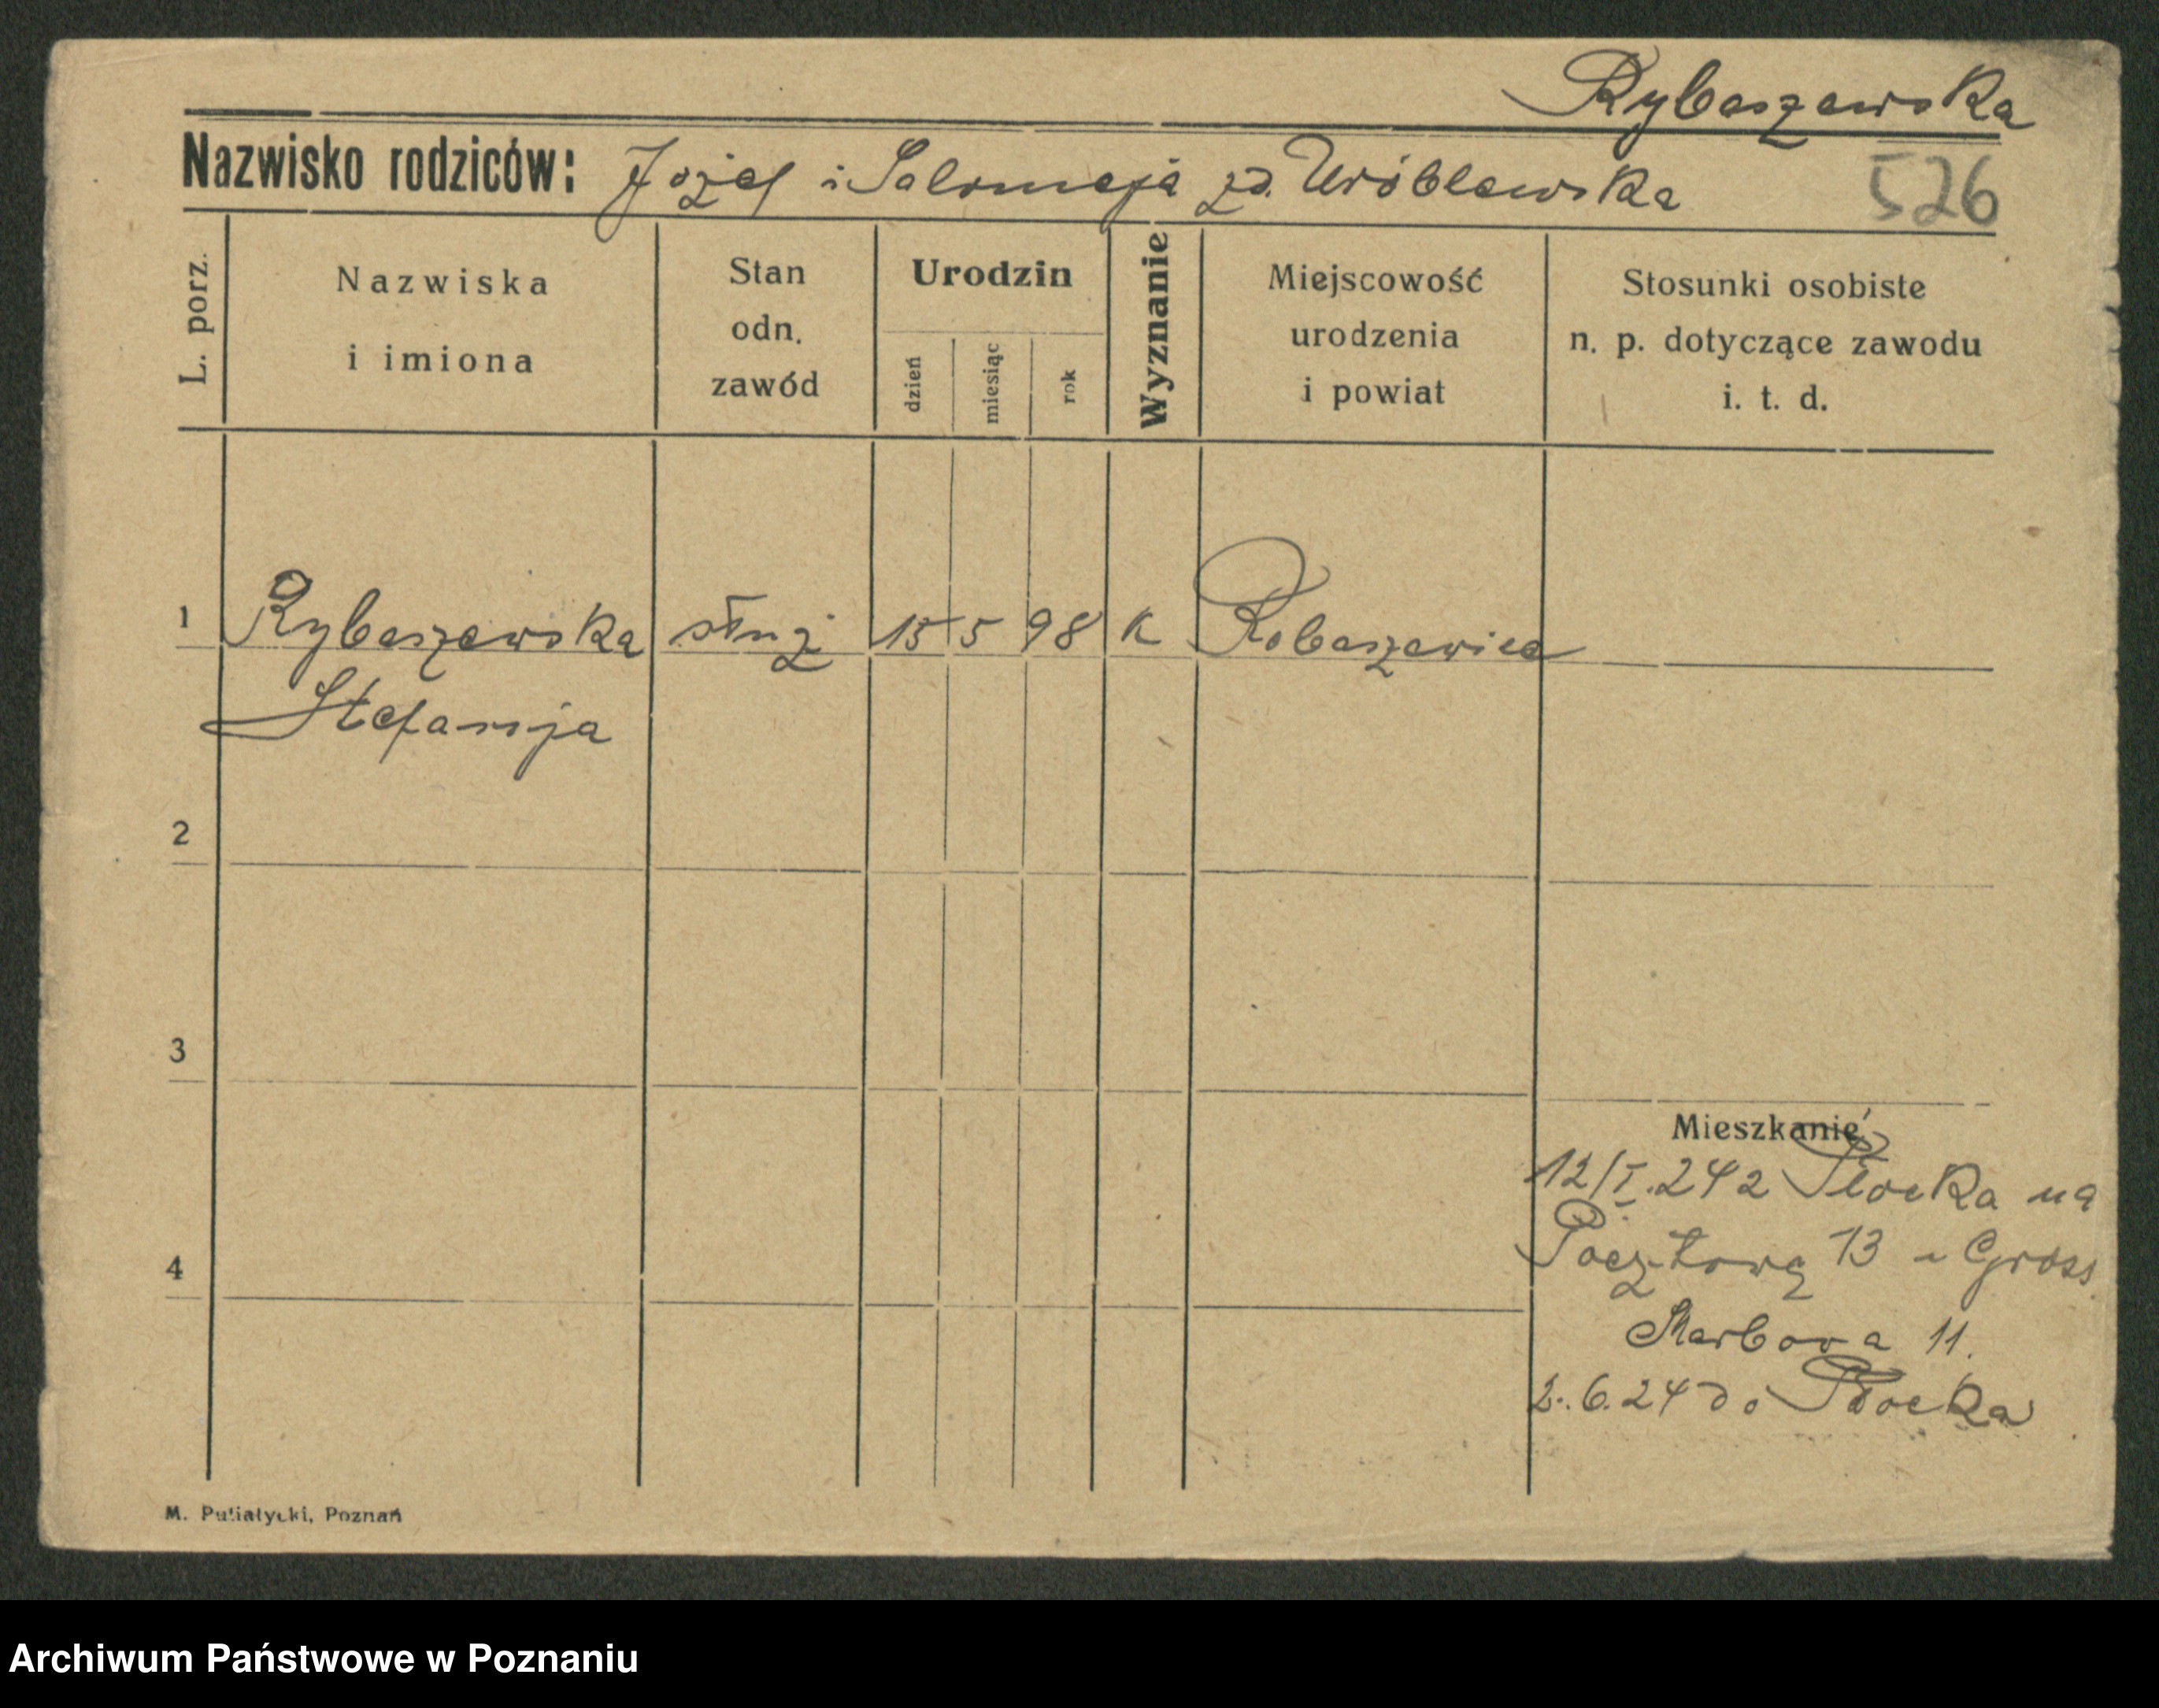 Rybaszewska
Nazwisko rodziców: Józef i Salomeja zd. Wróblewska
526
L. porz.
Nazwiska
i imiona
Stan
odn.
zawód
Urodzin
dzień
miesiąc
rok
Wyznanie
Miejscowość
urodzenia
i powiat
Stosunki osobiste
n. p. dotyczące zawodu
i. t. d.
1 Rybaszewska służ 15 5 98 K Robaszewice
Stefanja
2
3
Mieszkanie
12/I.24 z Płocka na
Pocztową 13 u Gross
4
Skarbowa 11.
2.6.24 do Płocka
M. Putiatycki, Poznań
Archiwum Państwowe w Poznaniu